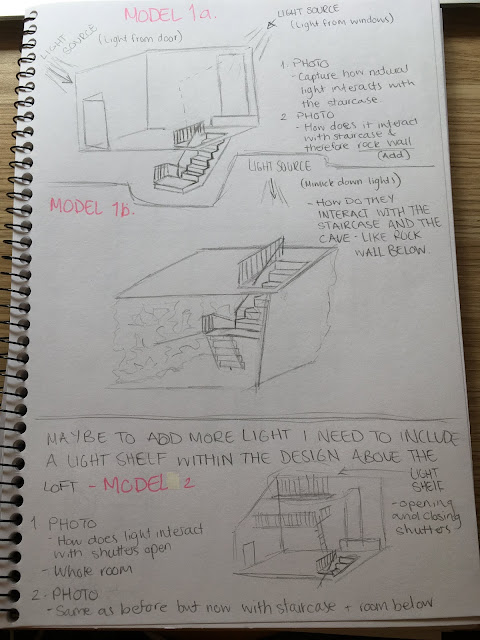 MODEL 1a.
LIGHT SOURCE
(Light from door)
LIGHT SOURCE
(Light from windows)
1 PHOTO
- Capture how natural
light interacts with
the staircase
2 PHOTO
- How does it interact
with staircase &
therefore rock wall
(Add)
MODEL 1b.
LIGHT SOURCE
(Mimick down lights)
- HOW DO THEY
INTERACT WITH THE
STAIRCASE AND THE
CAVE - LIKE ROCK
WALL BELOW.
MAYBE TO ADD MORE LIGHT I NEED TO INCLUDE
A LIGHT SHELF WITHIN THE DESIGN ABOVE THE
LOFT - MODEL 2
LIGHT
SHELF
- opening
and closing
shutters
1 PHOTO
- How does light interact
with shutters open
- Whole room
2. PHOTO
- Same as before but now with staircase + room below